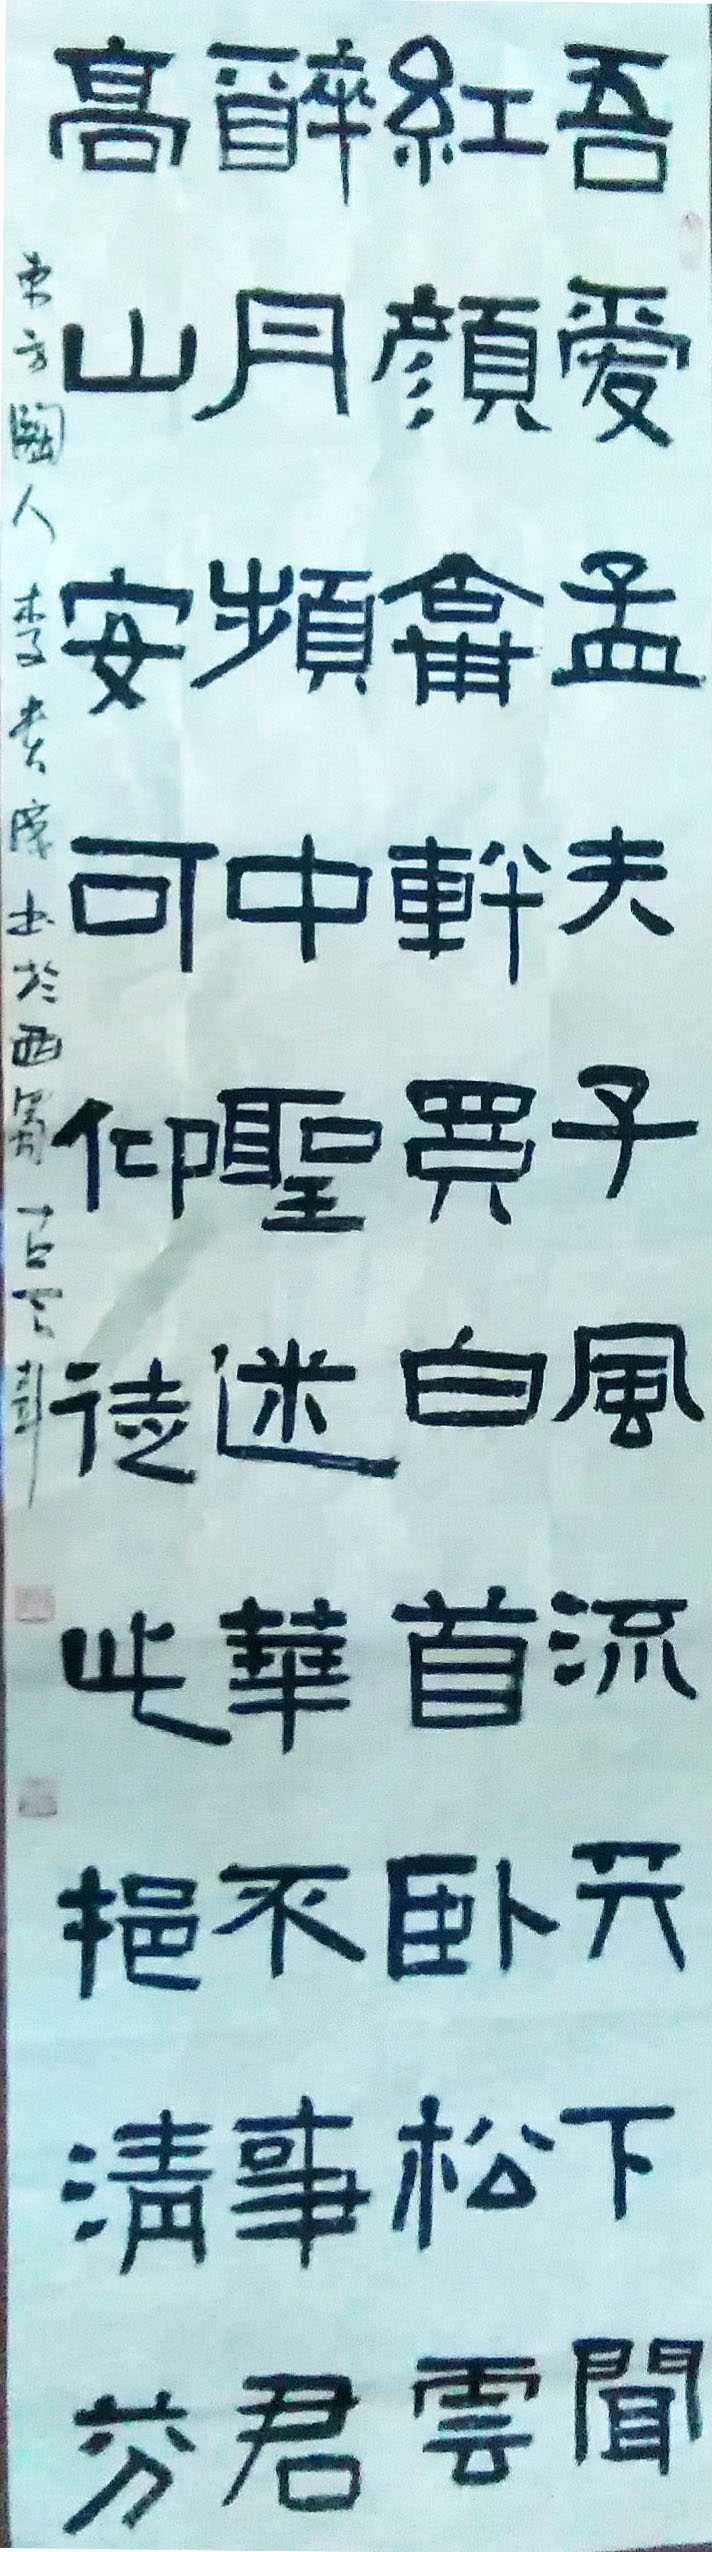 吾愛孟夫子風流天下聞
紅顔龠軒買白首臥松雲
醉月頻中聖迷華不事君
高山安可仰徒此挹清芬
東方國人李貴陵书於西蜀